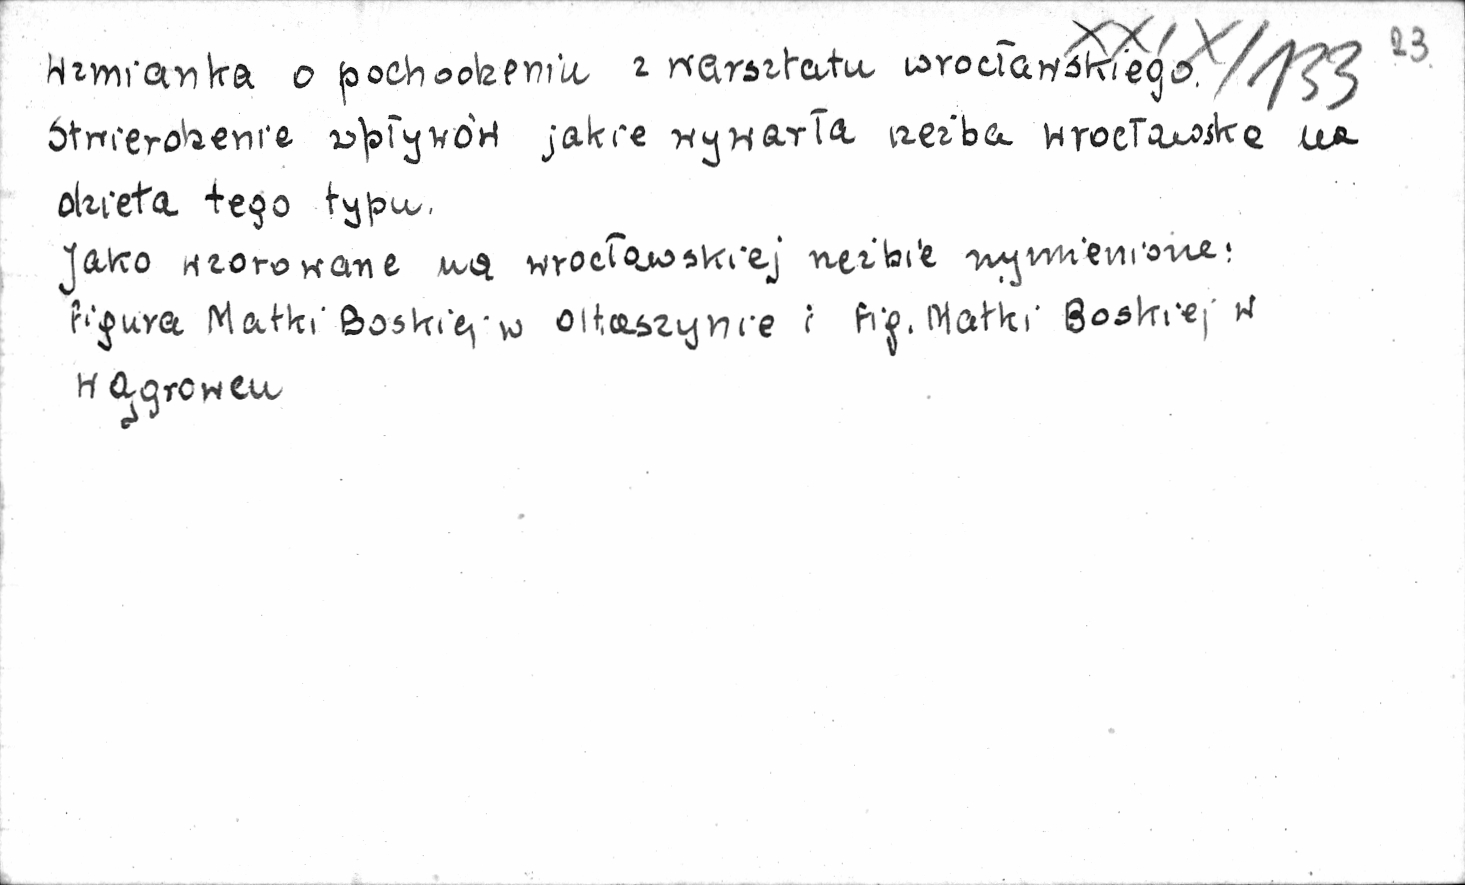 XXIX/133 23.
Wzmianka o pochodzeniu z warsztatu wrocławskiego.
Stwierdzenie wpływów jakie wywarła rzeźba wrocławska na
dzieła tego typu.
Jako wzorowane na wrocławskiej rzeźbie wymienione:
figura Matki Boskiej w Ołtaszynie i fig. Matki Boskiej w
Wągrowcu